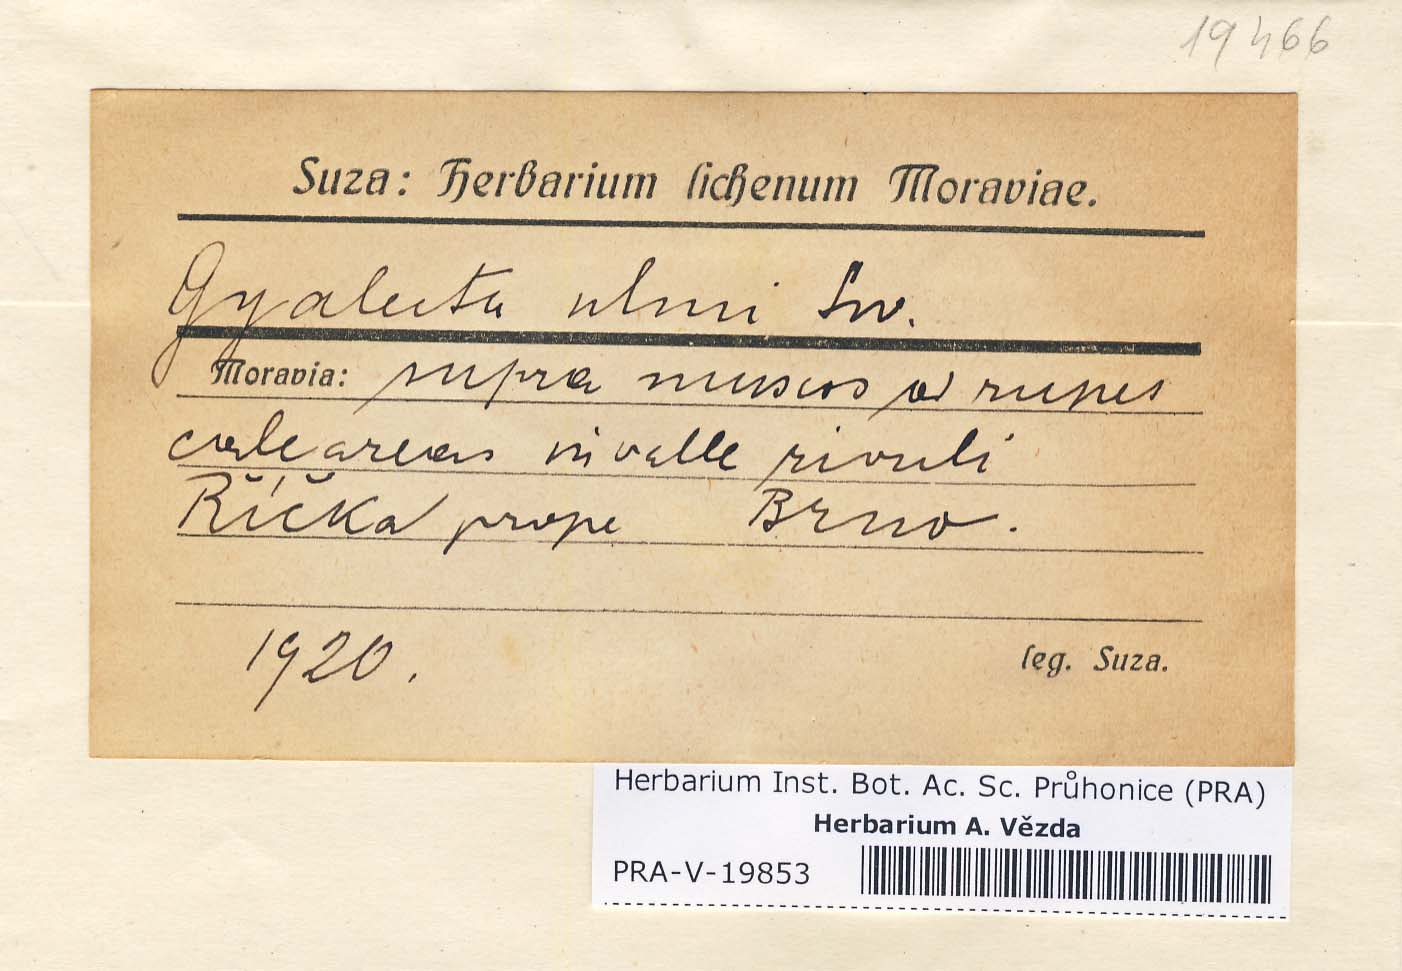 19466
Suza: Herbarium lichenum Moraviae.
Gyalecta ulmi Sw.
Moravia: supra muscos ad rupes
calcareas in valle rivuli
Říčka prope Brno.
1920.
leg. Suza.
Herbarium Inst. Bot. Ac. Sc. Průhonice (PRA)
Herbarium A. Vězda
PRA-V-19853